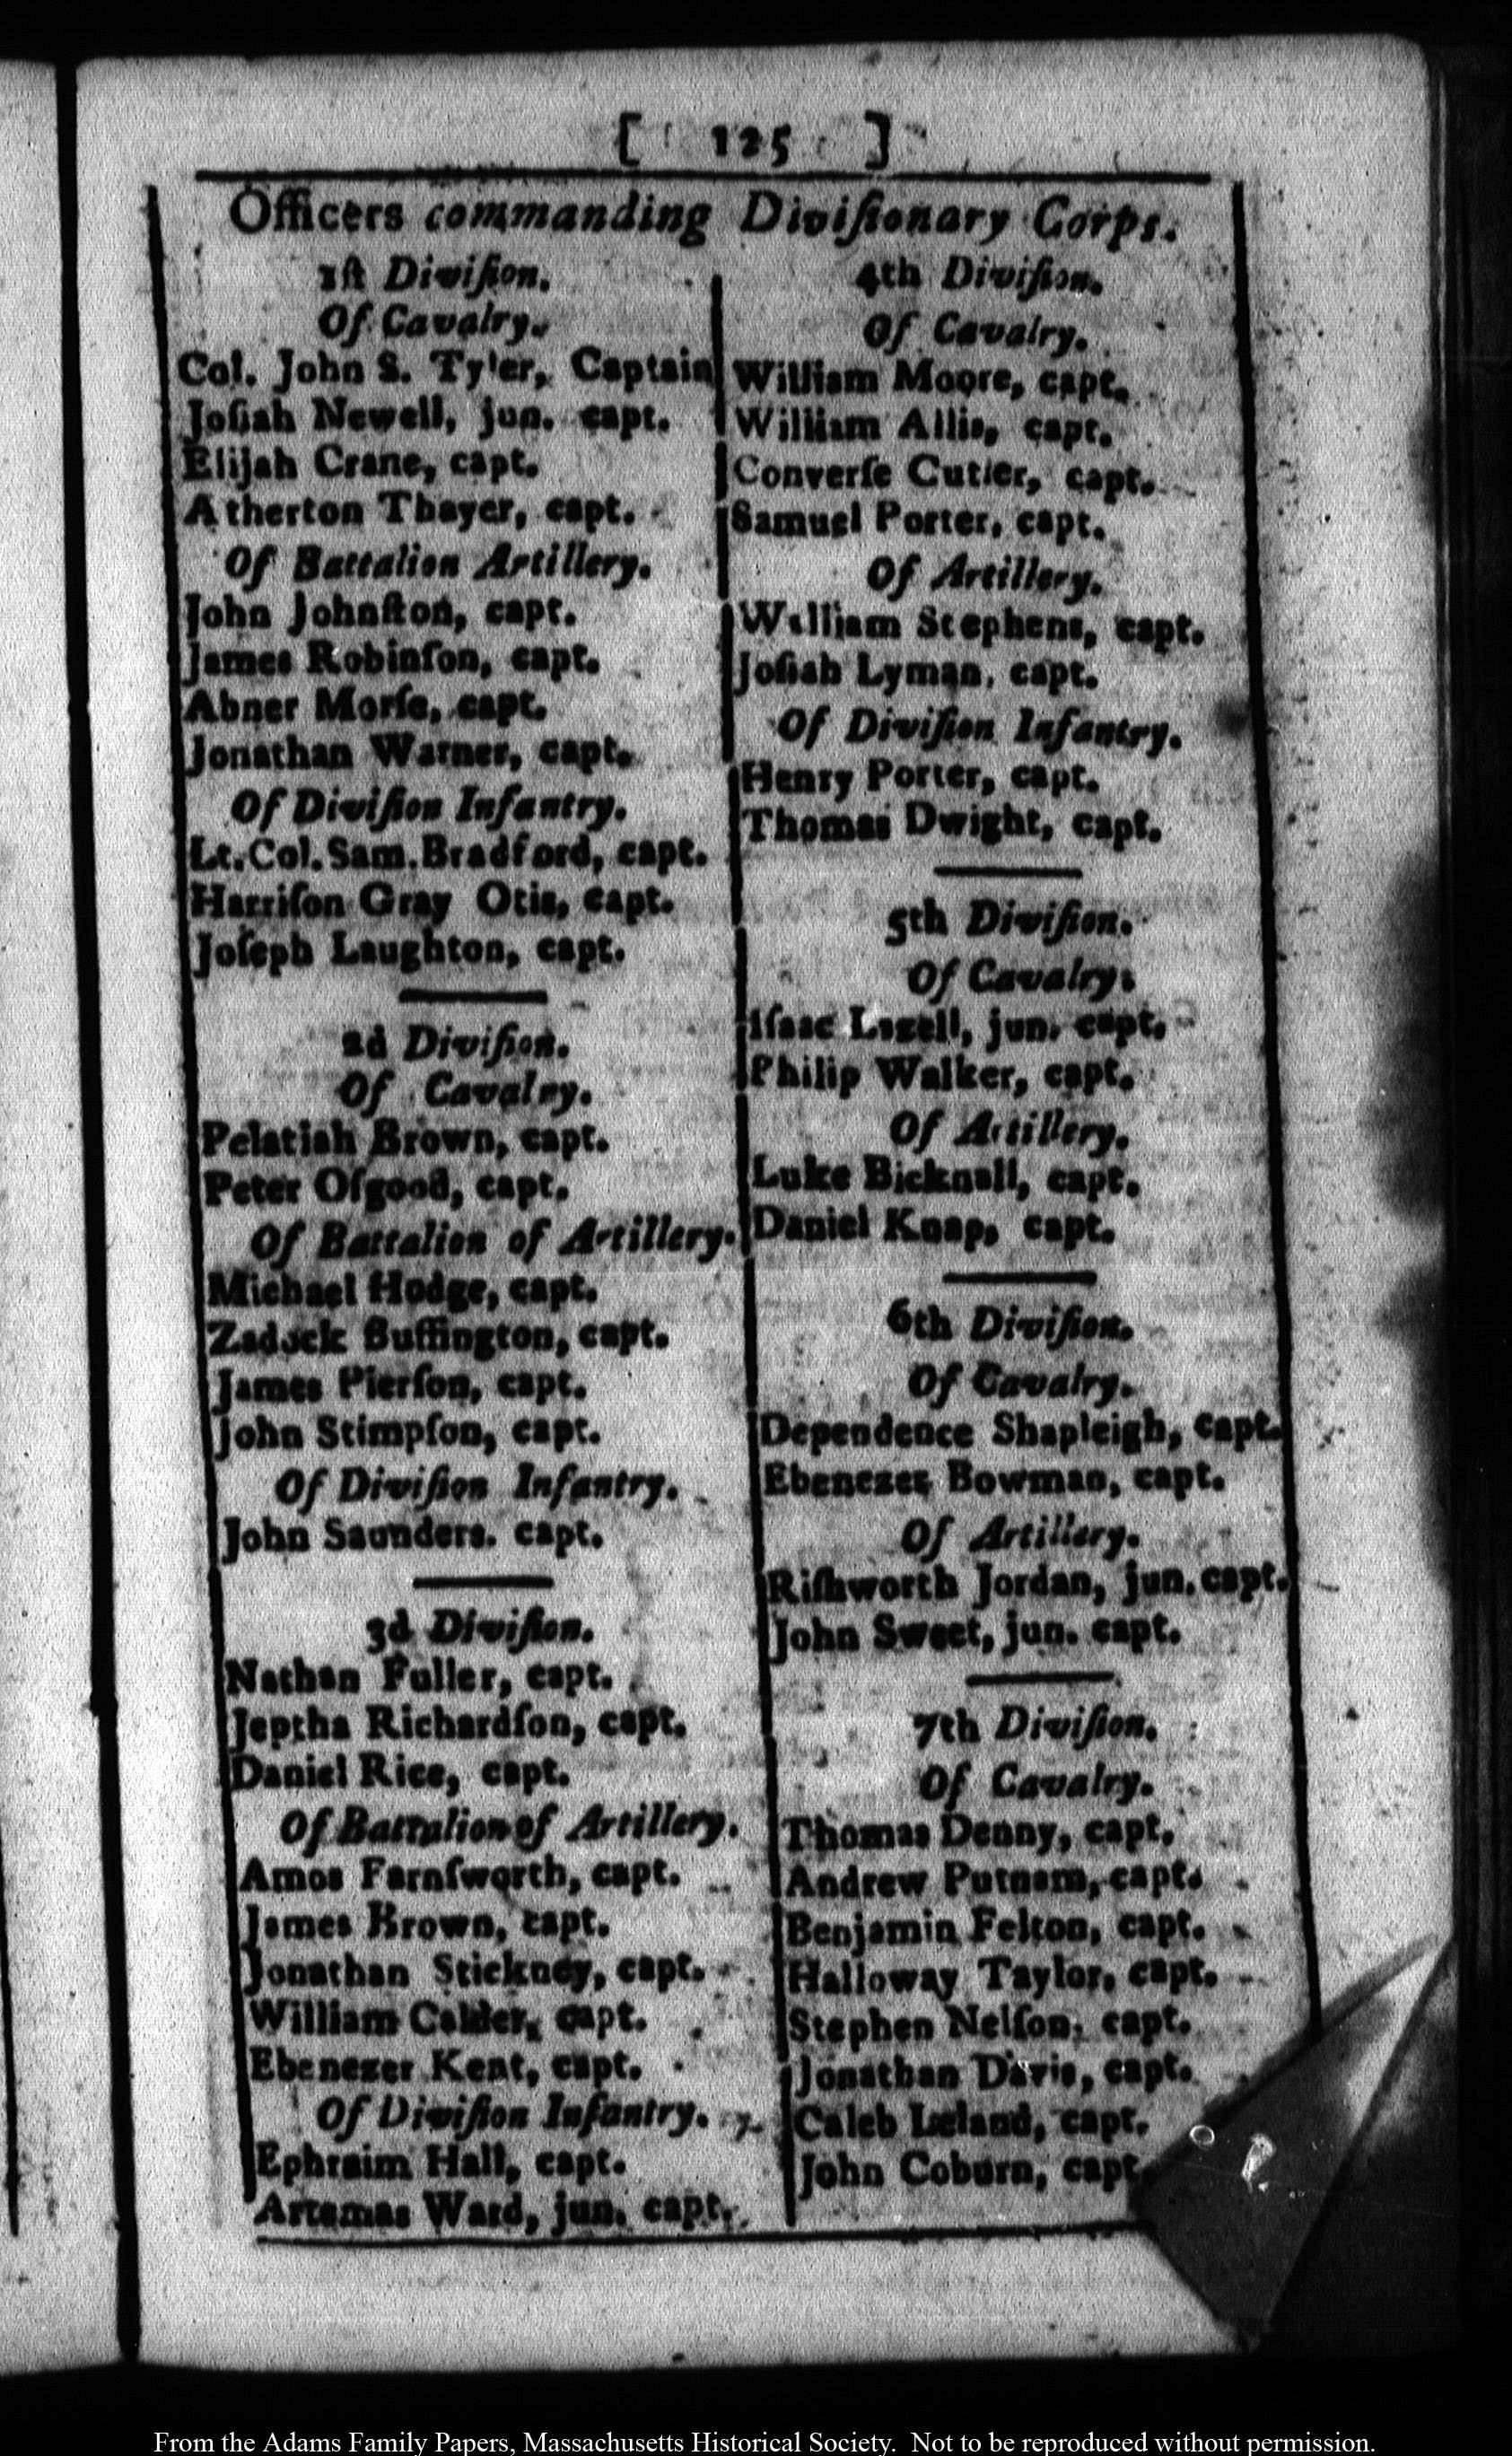 [ 125 ]
Officers commanding Diviſionary Corps.
1ſt Diviſion.
Of Cavalry.
Col. John S. Tyler, Captain
Joſiah Newell, jun. capt.
Elijah Crane, capt.
Atherton Thayer, capt.
Of Battalion Artillery.
John Johnſton, capt.
James Robinſon, capt.
Abner Morſe, capt.
Jonathan Warner, capt.
Of Diviſion Infantry.
Lt. Col. Sam. Bradford, capt.
Harriſon Gray Otis, capt.
Joſeph Laughton, capt.
2d Diviſion.
Of Cavalry.
Pelatiah Brown, capt.
Peter Oſgood, capt.
Of Battalion of Artillery.
Michael Hodge, capt.
Zadock Buffington, capt.
James Pierſon, capt.
John Stimpſon, capt.
Of Diviſion Infantry.
John Saunders. capt.
3d Diviſion.
Nathan Fuller, capt.
Jeptha Richardſon, capt.
Daniel Rice, capt.
Of Battalion of Artillery.
Amos Farnſworth, capt.
James Brown, capt.
Jonathan Stickney, capt.
William Calder, capt.
Ebenezer Kent, capt.
Of Diviſion Infantry.
Ephraim Hall, capt.
Artemas Ward, jun. capt.
4th Diviſion.
Of Cavalry.
William Moore, capt.
William Allis, capt.
Converſe Cutler, capt.
Samuel Porter, capt.
Of Artillery.
William Stephens, capt.
Joſiah Lyman, capt.
Of Diviſion Infantry.
Henry Porter, capt.
Thomas Dwight, capt.
5th Diviſion.
Of Cavalry.
Iſaac Lazell, jun. capt.
Philip Walker, capt.
Of Artillery.
Luke Bicknall, capt.
Daniel Knap, capt.
6th Diviſion.
Of Cavalry.
Dependence Shapleigh, capt.
Ebenezer Bowman, capt.
Of Artillery.
Riſhworth Jordan, jun. capt.
John Sweet, jun. capt.
7th Diviſion.
Of Cavalry.
Thomas Denny, capt.
Andrew Putnam, capt.
Benjamin Felton, capt.
Halloway Taylor, capt.
Stephen Nelſon, capt.
Jonathan Davis, capt.
Caleb Leland, capt.
John Coburn, capt
From the Adams Family Papers, Massachusetts Historical Society. Not to be reproduced without permission.